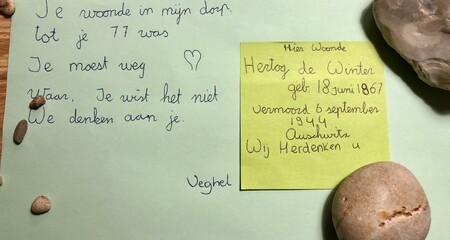 Je woonde in mijn dorp.
tot je 77 was
Je moest weg
Waar, Je wist het niet
We denken aan je.
Veghel
Hier Woonde
Hertog de Winter
geb. 18 juni 1867
vermoord 6 september
1944
Auschwitz
Wij Herdenken u